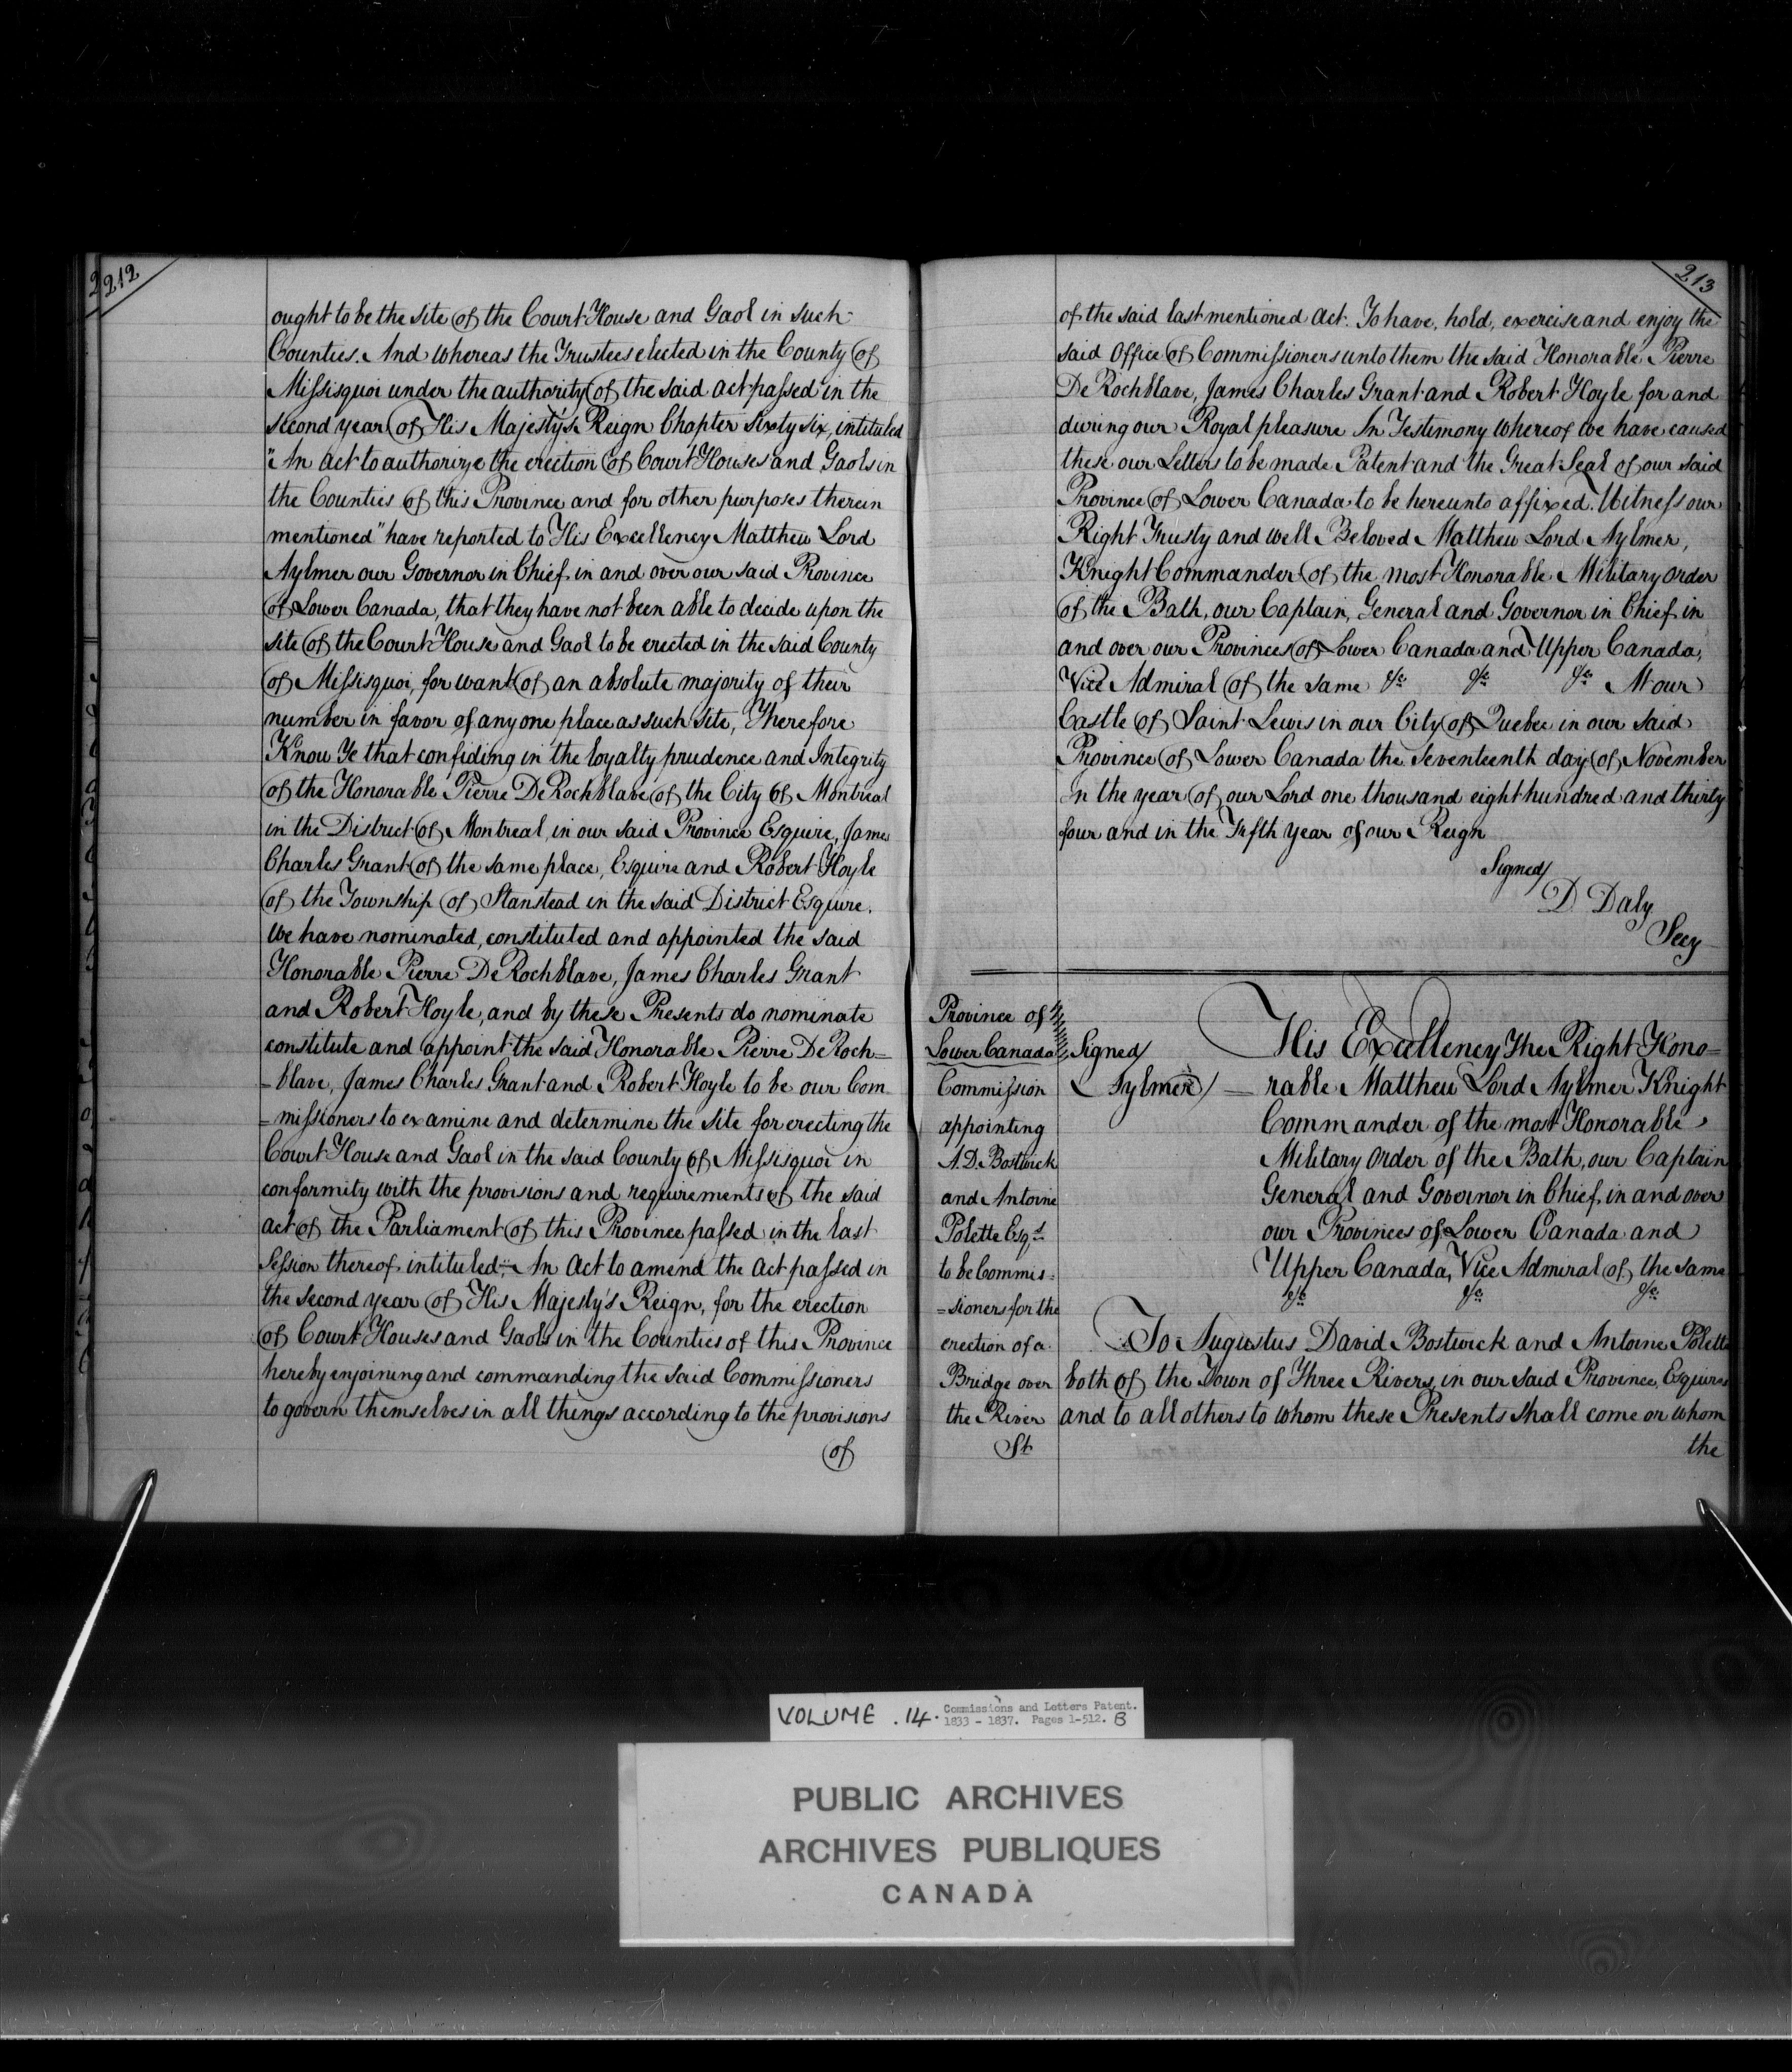 212
ought to be the site of the Court House and Gaol in such
Counties. And whereas the Trustees elected in the County of
Missisquoi under the authority of the said act passed in the
second year of His Majesty's Reign Chapter Sixty six, intituled
"An Act to authorize the erection of Court Houses and Gaols in
the Counties of this Province and for other purposes therein
mentioned" have reported to His Excellency Matthew Lord
Aylmer our Governor in Chief in and over our said Province
of Lower Canada, that they have not been able to decide upon the
site of the Court House and Gaol to be erected in the said County
of Missisquoi, for want of an absolute majority of their
number in favor of any one place as such site, Therefore
Know Ye that confiding in the loyalty prudence and Integrity
of the Honorable Pierre De Rochblave of the City of Montreal
in the District of Montreal, in our said Province Esquire, James
Charles Grant of the same place, Esquire and Robert Hoyle
of the Township of Stanstead in the said District Esquire.
We have nominated, constituted and appointed the said
Honorable Pierre De Rochblave, James Charles Grant
and Robert Hoyle, and by these Presents do nominate
constitute and appoint the said Honorable Pierre De Roch=
=blave, James Charles Grant and Robert Hoyle to be our Com
=missioners to examine and determine the site for erecting the
Court House and Gaol in the said County of Missisquoi in
conformity with the provisions and requirements of the said
act of the Parliament of this Province passed in the last
Session thereof intituled; An Act to amend the act passed in
the second year of His Majesty's Reign, for the erection
of Court Houses and Gaols in the Counties of this Province
hereby enjoining and commanding the said Commissioners
to govern themselves in all things according to the provisions
of
213
of the said last mentioned Act. To have, hold, exercise and enjoy the
said Office of Commissioners unto them the said Honorable Pierre
De Rochblave, James Charles Grant and Robert Hoyle for and
during our Royal pleasure In Testimony whereof we have caused
these our Letters to be made Patent and the Great Seal of our said
Province of Lower Canada to be hereunto affixed. Witness our
Right Trusty and well Beloved Matthew Lord Aylmer,
Knight Commander of the most Honorable Military Order
of the Bath, our Captain, General and Governor in Chief in
and over our Provinces of Lower Canada and Upper Canada,
Vice Admiral of the same &c &c &c At our
Castle of Saint Lewis in our City of Quebec in our said
Province of Lower Canada the Seventeenth day of November
In the year of our Lord one thousand eight hundred and thirty
four and in the Fifth year of our Reign
Signed/
D Daly
Secy
Province of
Lower Canada
Commission
appointing
A. D. Bostwick
and Antoine
Polette Esqs
to be Commis=
=sioners for the
erection of a
Bridge over
the River
St
Signed/
Aylmer/
His Excellency The Right Hono=
rable Matthew Lord Aylmer Knight
Commander of the most Honorable
Military Order of the Bath, our Captain
General and Governor in Chief, in and over
our Provinces of Lower Canada and
Upper Canada, Vice Admiral of the same
&c &c &c
To Augustus David Bostwick and Antoine Polette
both of the Town of Three Rivers, in our said Province, Esquires
and to all others to whom these Presents shall come or whom
the
VOLUME .14. Commissions and Letters Patent.
1833 - 1837. Pages 1-512. B
PUBLIC ARCHIVES
ARCHIVES PUBLIQUES
CANADA